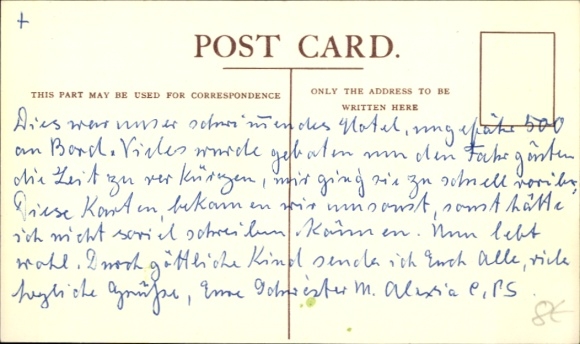 +
POST CARD.
THIS PART MAY BE USED FOR CORRESPONDENCE
ONLY THE ADDRESS TO BE
WRITTEN HERE
Dies war unser schwimmendes Hotel, ungefähr 500
an Bord. Vieles wurde geboten um den Fahrgästen
die Zeit zu verkürzen, mir ging sie zu schnell vorüber,
Diese Karten, bekamen wir umsonst, sonst hätte
ich nicht soviel schreiben können. Nun lebt
wohl. Durch göttliche Kind sende ich Euch Alle, viele
herzliche Grüße, Eure Schwester M. Alexia C.PS.
8€